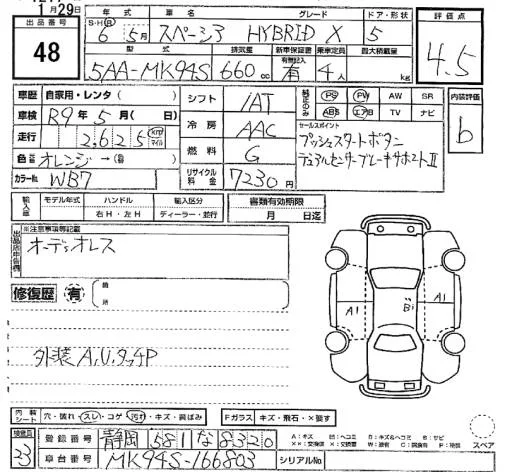 月29日
出品番号 48
年式 車名 グレード ドア・形状
S・H・R 6年5月 スペーシア HYBRID X 5
型式 排気量 新車保証書 乗車定員 最大積載量
5AA-MK94S 660cc 有 4人 kg
評価点 4.5
車歴 自家用・レンタ( )
車検 R9年5月( 日)
走行 2,625 km マイル
色 オレンジ→( )
カラーNo. WB7
シフト IAT
冷房 AAC
燃料 G
リサイクル料金 7230円
純正のみ PS PW AW SR
ABS エアB TV ナビ
セールスポイント
プッシュスタートボタン
デュアルセンサーブレーキサポートⅡ
内装評価 b
輸入車 モデル年式 ハンドル 輸入区分 書類有効期限
右H・左H ディーラー・並行 月 日迄
出品店申告欄 ※注意事項等記載
オーディオレス
修復歴 有 箇所
外装A,U,タッチP
A1 Bi A1
内装 シート 穴・破れ・スレ・コゲ・汚れ・キズ・雨ばみ Fガラス キズ・飛石・×要す
スペア
検査員 23
登録番号 静岡 581 な 8320
車台番号 MK94S-166803 シリアルNo.